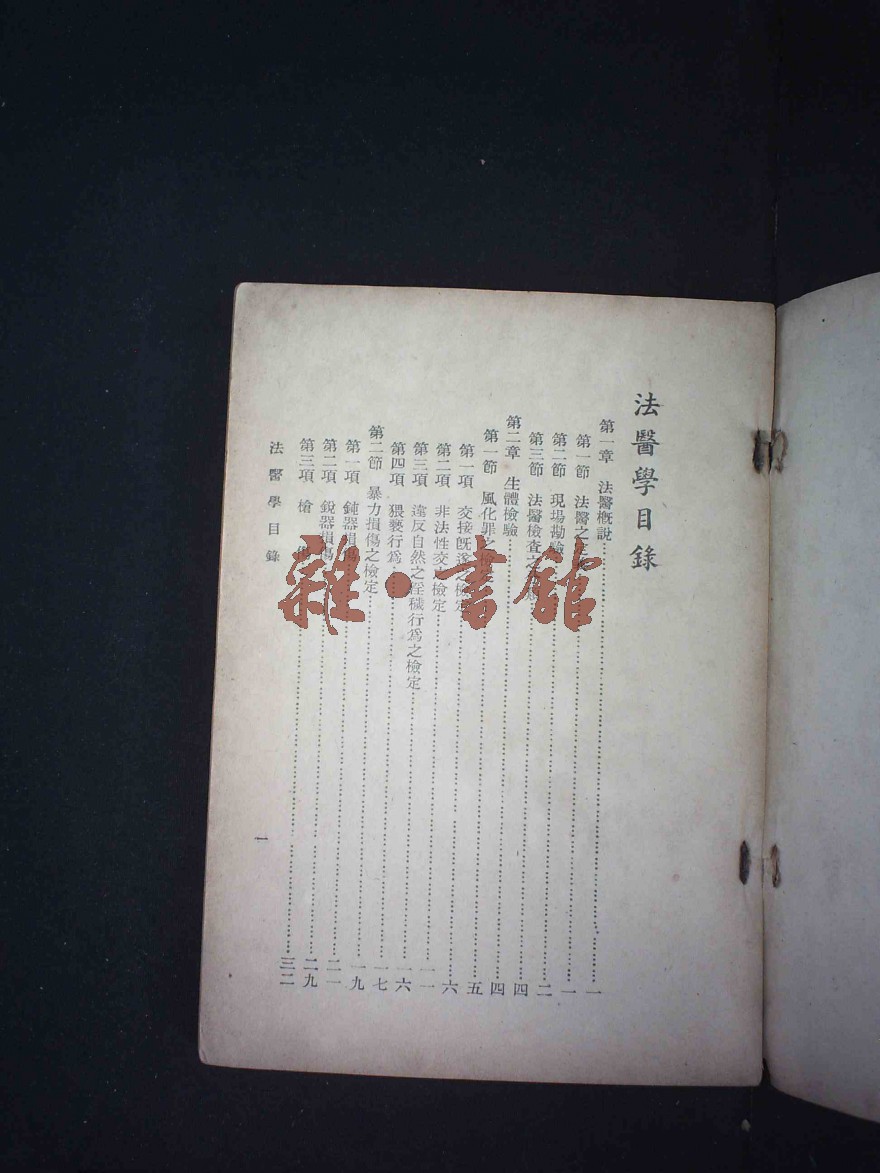 法醫學目錄
第一章 法醫概說……一
第一節 法醫之……一
第二節 現場勘驗……二
第三節 法醫檢查之……四
第二章 生體檢驗……四
第一節 風化罪之……五
第一項 交接既遂之檢定……六
第二項 非法性交之檢定……一一
第三項 違反自然之淫穢行爲之檢定……一六
第四項 猥褻行爲……一七
第二節 暴力損傷之檢定……一九
第一項 鈍器損傷……二一
第二項 銳器損傷……二九
第三項 槍……三二
法醫學目錄
一
雜·書館